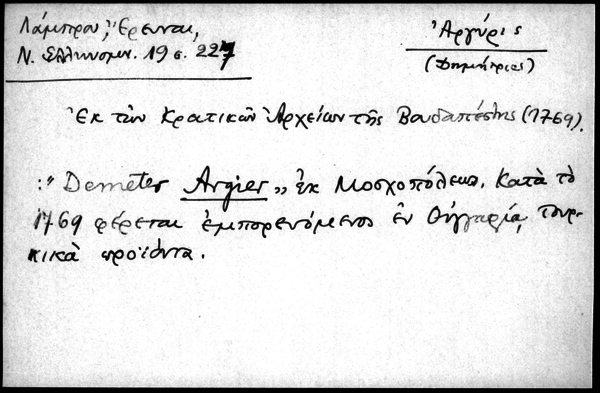 Λάμπρου, Ἔρευναι,
Ν. Ἑλληνομν. 19 σ. 227
Ἀργύρις
(Δημήτριος)
Ἐκ τῶν Κρατικῶν Ἀρχείων τῆς Βουδαπέστης (1769).
: "Demeter Argier" ἐκ Μοσχοπόλεως. Κατὰ τὸ
1769 φέρεται ἐμπορευόμενος ἐν Οὑγγαρίᾳ τουρ-
κικὰ προϊόντα.